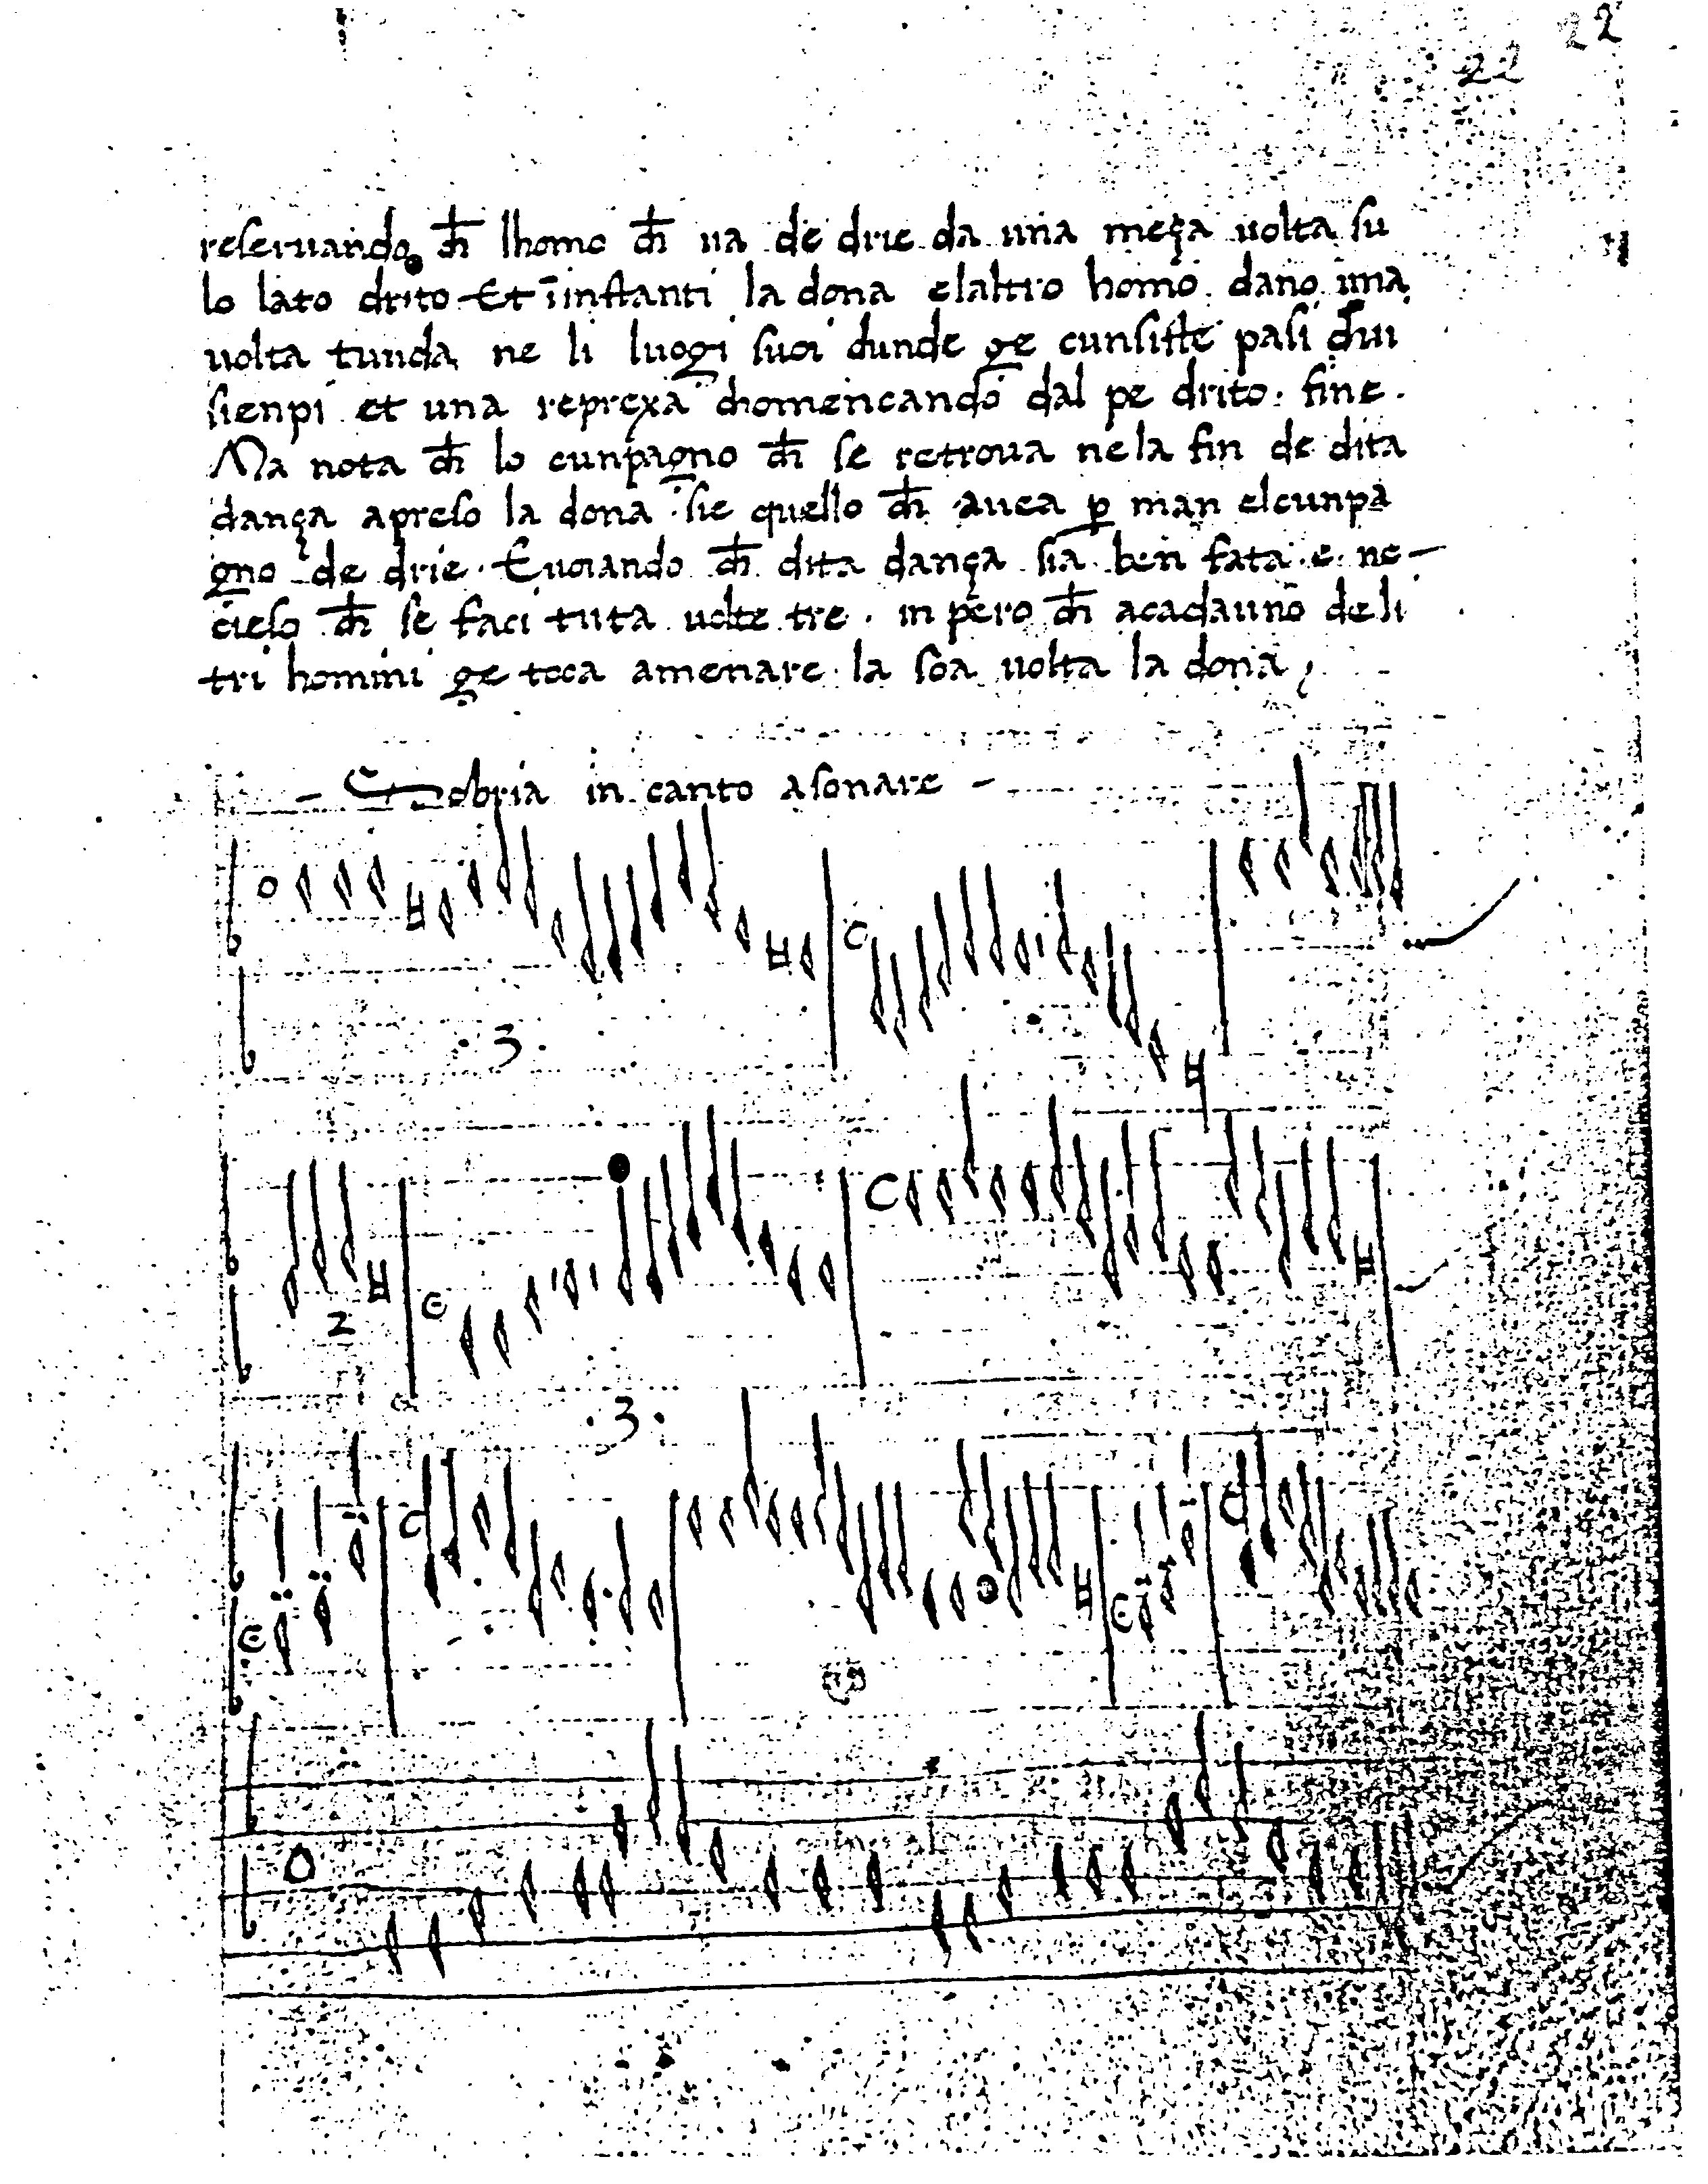 22
22
reseruando ch̄ lhomo ch̄ ua de drie da una meça uolta su
lo lato drito Et īinstanti la dona elaltro homo dano una
uolta tunda ne li luogi suoi dunde ge cunsiste pasi dui
sienpi et una reprexa chomencando dal pe drito. fine.
Ma nota ch̄ lo cunpagno ch̄ se retroua nela fin de dita
dança apreso la dona sie quello ch̄ auea ꝑ man elcunpa
gno de drie. Euoiando ch̄ dita dança sia ben fata e ne-
cieso ch̄ se faci tuta uolte tre. in pero ch̄ acadauno deli
tri homini ge toca amenare la soa uolta la dona
- Sobria in canto asonare -
.3.
2
.3.